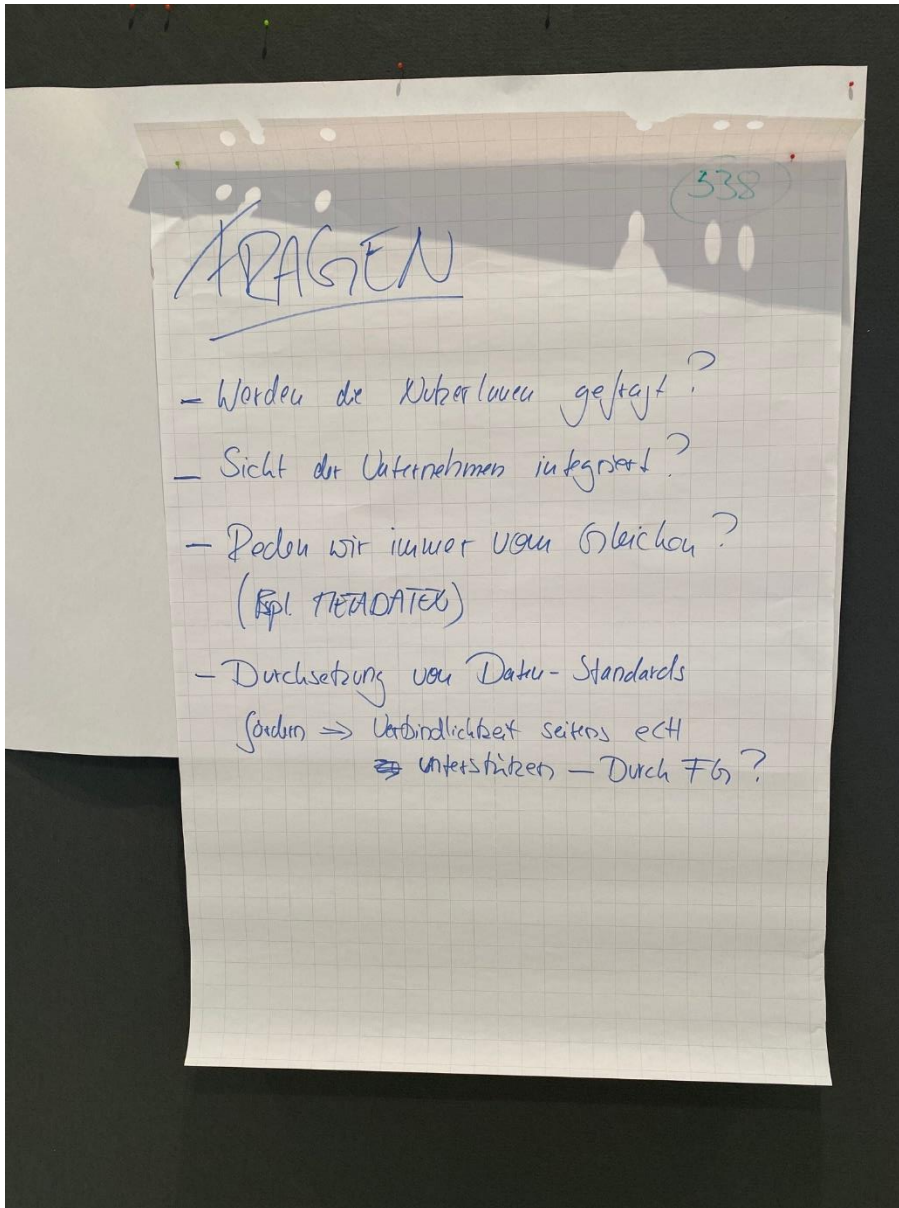 338
FRAGEN
- Werden die NutzerInnen gefragt?
- Sicht der Unternehmen integriert?
- Reden wir immer vom Gleichen?
(Bspl. METADATEN)
- Durchsetzung von Daten-Standards
fördern => Verbindlichkeit seitens eCH
unterstützen - Durch FG?